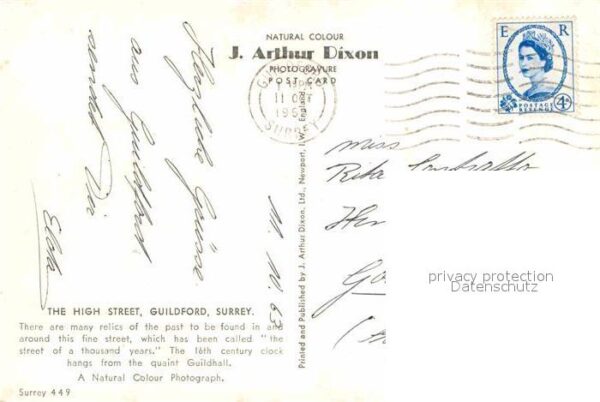 NATURAL COLOUR
J. Arthur Dixon
PHOTOGRAVURE
POST CARD
E R
POSTAGE
REVENUE
4D
11 OC
SURREY
Herzliche Grüsse
aus Guildford
sendet Dir
M. W. 63
Miss
Rita
privacy protection
Datenschutz
Printed and Published by J. Arthur Dixon, Ltd., Newport, I.W., England.
THE HIGH STREET, GUILDFORD, SURREY.
There are many relics of the past to be found in and
around this fine street, which has been called "the
street of a thousand years." The 16th century clock
hangs from the quaint Guildhall.
A Natural Colour Photograph.
Surrey 449